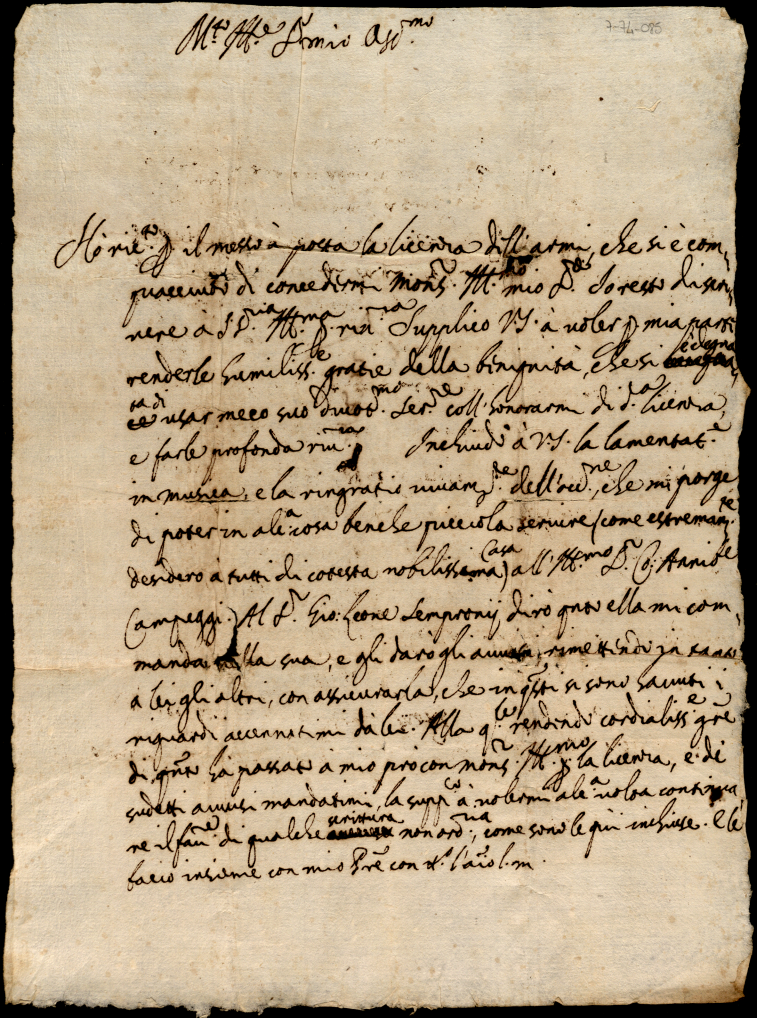 7-74-085
M.to Ill.e S.r mio Oss.mo
Hò ric.to p il messo à posta la licenza dell'armi, che si è com,
piacciuto di concedermi Mons.r Ill.mo mio S.re Io resto di scri,
vere à S.S.ria Ill.ma p riu.za Supplico V.S. à voler p mia parte
renderle humiliss.e gratie della benignità, che si è degna,
ta di usar meco suo devot.mo ser.re coll'honorarmi di d.a licenza,
e farle profonda riu.za Inchiudo à V.S. la lamentat.e
in musica, e la ringratio vivam.te dell'occ.ne, che mi porge
di poter in alc.a cosa benche picciola servire (come estremam.te
desidero à tutti di cotesta nobilissima Casa) all'Ill.mo S.r Co: Annibe
Campeggi. Al S.r Gio: Leone Sempronij dirò qnto ella mi com,
manda la sua, e gli darò gli avvisi, rimettendo in tanto
à lei gli altri, con assicurarla, che in qsti si sono havuti i
riguardi accennatimi da lei. Alla q.le rendendo cordialiss.e gre
di qnto hà passato à mio prò con Mons.r Ill.mo p la licenza, e de
sudetti avvisi mandatimi, la supp.co à volermi alc.a volta continua,
re il fav.re di qualche scrittura non ord.ria, come sono le qui inchiuse. E le
bacio insieme con mio Pre con le m.